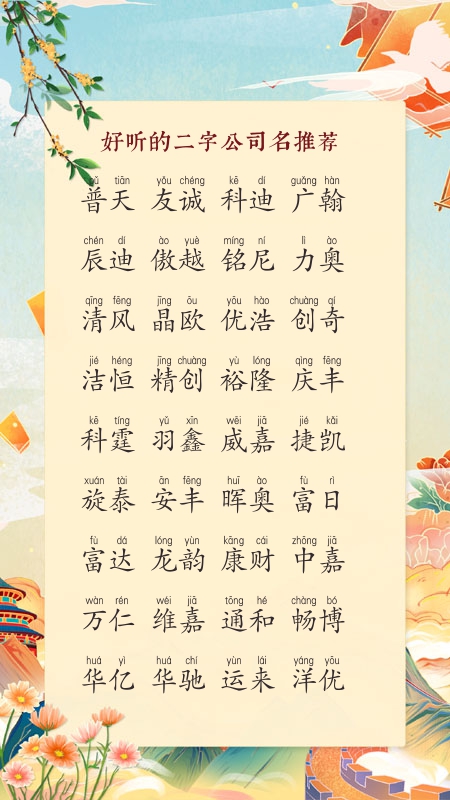 好听的二字公司名推荐
pǔ tiān yǒu chéng kē dí guǎng hàn
普天 友诚 科迪 广翰
chén dí ào yuè míng ní lì ào
辰迪 傲越 铭尼 力奥
qīng fēng jīng ōu yōu hào chuàng qí
清风 晶欧 优浩 创奇
jié héng jīng chuàng yù lóng qìng fēng
洁恒 精创 裕隆 庆丰
kē tíng yǔ xīn wēi jiā jié kǎi
科霆 羽鑫 威嘉 捷凯
xuán tài ān fēng huī ào fù rì
旋泰 安丰 晖奥 富日
fù dá lóng yùn kāng cái zhōng jiā
富达 龙韵 康财 中嘉
wàn rén wéi jiā tōng hé chàng bó
万仁 维嘉 通和 畅博
huá yì huá chí yùn lái yáng yōu
华亿 华驰 运来 洋优